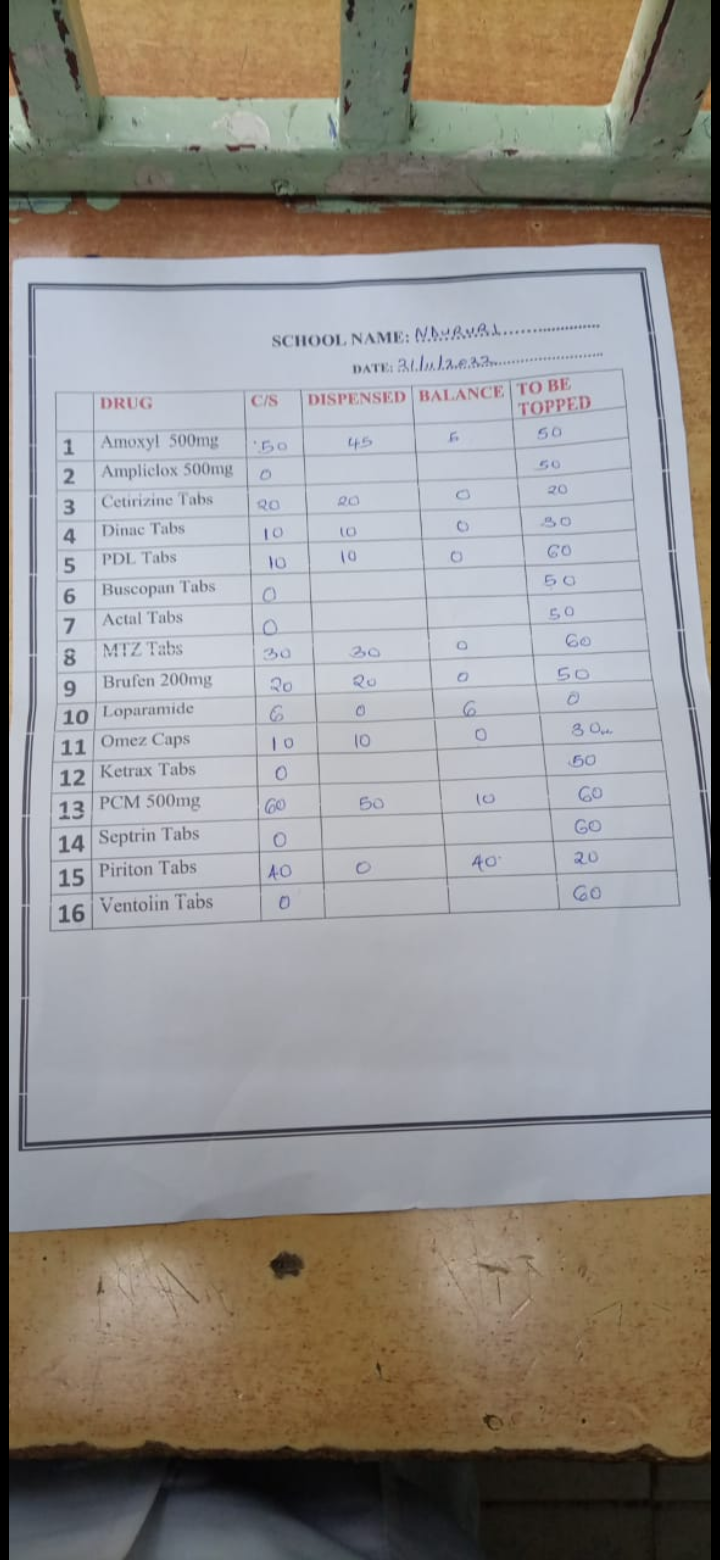 SCHOOL NAME: NDURURI
DATE: 31/11/2022
DRUG C/S DISPENSED BALANCE TO BE TOPPED
1 Amoxyl 500mg 50 45 5 50
2 Ampliclox 500mg 0 50
3 Cetirizine Tabs 20 20 0 20
4 Dinac Tabs 10 10 0 30
5 PDL Tabs 10 10 0 60
6 Buscopan Tabs 0 50
7 Actal Tabs 0 50
8 MTZ Tabs 30 30 0 60
9 Brufen 200mg 20 20 0 50
10 Loparamide 6 0 6 0
11 Omez Caps 10 10 0 30
12 Ketrax Tabs 0 50
13 PCM 500mg 60 50 10 60
14 Septrin Tabs 0 60
15 Piriton Tabs 40 0 40 20
16 Ventolin Tabs 0 60